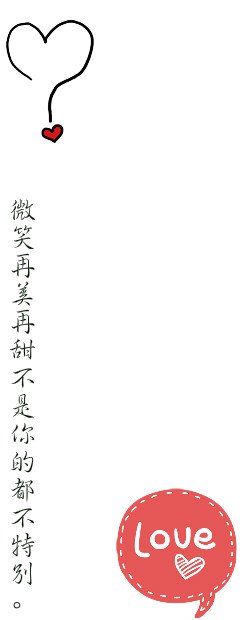 微笑再美再甜不是你的都不特别。
Love